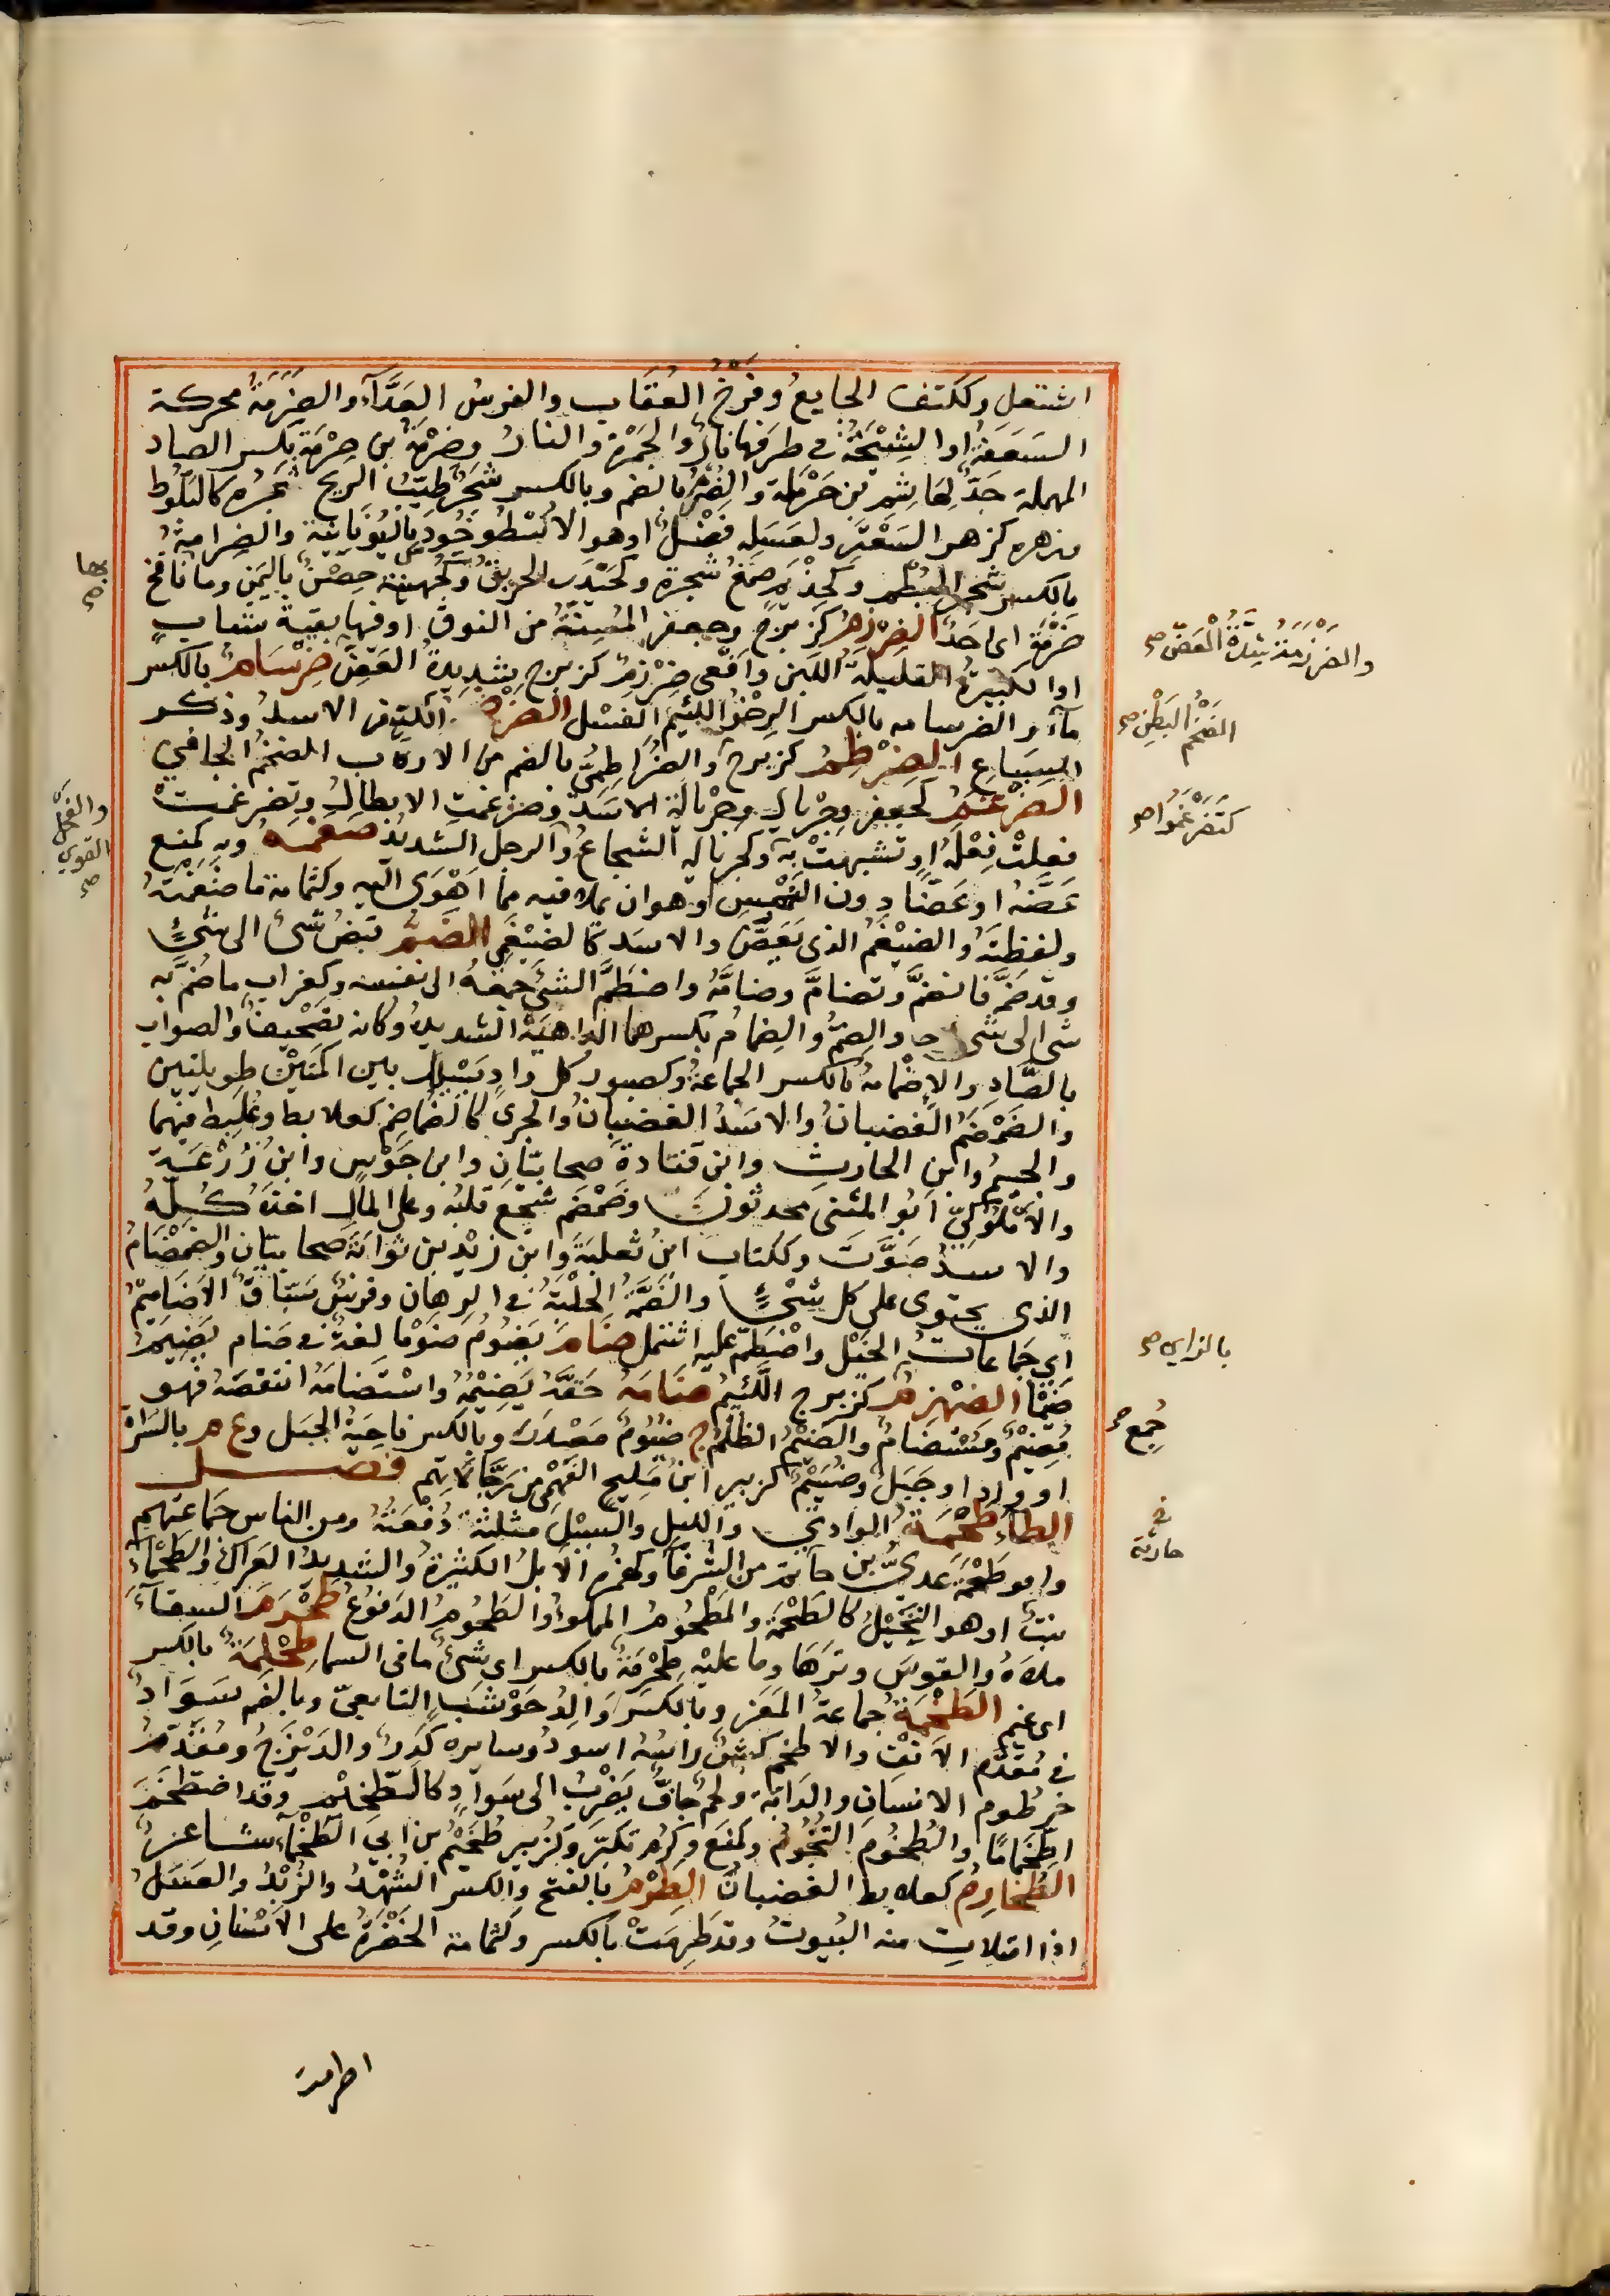 اشتعل وككتف الجايع وفَرْخُ العُقَاب والفرسُ العَدَّآءُ والضَرَمَةُ محركة
السَعَفَةُ اوالشِيْحَةُ فى طرفها نارٌ والجَمْرَةُ والنارُ وضِرْمَةُ بن صِرْمَةَ بكسر الصاد
المهملة جَدٌّ لهَاشِمِ بن حَرْمَلَةَ والضُرْمُ بالضم وبالكسر شجرٌ طيّبُ الريح ثمره كالبَلُّوط
وزهره كزهر السَعْتَرِ ولعَسَلِه فضلٌ اوهو الاُسْطُوخُودُ باليُونَانية والضِرامةُ
بالكسر شجر البُطْم وكحِذْيَمٍ صَمْغُ شجرة وكحَيْدَر الحريقُ وكجُهينة حِصْنٌ باليَمَن وما نافخ
ضَرَمَةٍ اى احَدٌ الضِرْزِمُ كزبرج وجعفر المُسِنَّةُ من النوق اوفيها بقية شبابٍ
اوالكبيرةُ القليلةُ اللَبَن وافعى ضِرْزِمٌ كزبرج شديدةُ العَضِّ ضِرْسَامٌ بالكسر
مآءٌ والضرسامة بالكسر الرِخْوُ اللئيم الفَسْل الضرم ككتف الاسدُ وذكر
السِبَاعِ الضِرْطِمُ كزبرج والضُرَاطِمِىُّ بالضم من الاركاب الضخمُ الجافي
الضَرْغَمُ كجعفر وجِرْيالٍ وجِرْيالَةٍ الاسَدُ وضَرْغَمتِ الابطالُ وتضرغمتْ
فعلتْ فِعْلَهُ او تشبهتْ به وكجريالةٍ الشجاعُ والرجلُ الشديدُ ضغمه وبه كمنع
عَضَّهُ او عَضًّا دون النَهْسِ او هو ان يملا فيه مما اَهْوَى اليه وكثمامة ما ضَغَمْتَهُ
ولفظتَهُ والضَيْغَمُ الذى يَعَضُّ والاسَد كالضَيْغَمِىِّ الضَمُّ قبضُ شىءٍ الى شىءٍ
وقد ضَمَّهُ فانضمَّ وتضامَّ وضامَّهُ واضطَمَّ الشىَ جَمَعَهُ الى نفسه وكغراب ما ضُمَّ به
شى الى شى والضِمُّ والضِمامُ بكسرهما الداهيةُ الشديدةُ وكانه تصحيفٌ والصواب
بالصَّادِ والاِضْمَامَةُ بالكسر الجماعةُ وكصبور كل وادٍ يُسْلَكُ بين اكَمَتَيْن طويلتين
والضَمْضَمُ الغَضبانُ والاسَدُ الغضبانُ والجرىُ كالضُمَاضِمِ كعلابط وعُلَبِط فيهما
والجسيمُ وابن الحارث وابن قتادةَ صحابيّان وابن جَوْسٍ وابنُ زُرْعَةَ
والاُمْلُوكِيُّ ابُو المثنى محدثون وضَمْضَمَ شجّعَ قلبَه وعلى المال اخذه كُلَّهُ
والاسدُ صَوَّتَ وككتاب ابنُ ثعلبةَ وابن زيْد بن ثوابةَ صحابيّان والضَمْضَامُ
الذى يحتوى على كل شىءٍ والضَمَّةُ الحَلْبَةُ فى الرِهانِ وفرسٌ سَبّاقُ الاَضَامِيْمِ
اى جَمَاعاتِ الخَيْل واضْطَمَّ عليه اشتمل ضَامَ يَضُومُ ضَوْمًا لغةٌ فى ضام يَضِيْمُ
ضَيْمًا الضهزم كزبرج اللئيمُ ضَامَهُ حَقَّهُ يَضِيْمُهُ واسْتَضامَهُ انتقصَهُ فهو
مُضِيْمٌ ومُسْتَضامٌ والضَيْمُ الظلمُ ج ضُيُومٌ مَصْدَرٌ وبالكسر ناحيةُ الجبَل وع م بالسَّرَاةِ
او وادٍ او جَبَلٌ وضُيَيْمٌ كزبير ابنُ مَليح الفَهْمِى من رجالاتهم فصـــــل
الطآء طَحْمَةُ الوادى والليل والسَيْل مثلثةً دُفْعَتُهُ ومن الناس جَمَاعَتُهم
وابو طَحْمَةَ عدىُّ بن حارثة من الشُرَفآ وكهُمَزة الاِبلُ الكثيرةُ والشديدُ العَرَاكِ والطَحْمَآءُ
نبتٌ او هو النَجيْلُ كالطَحْمَة والمَطْحُومُ المملوءُ والطَحُومُ الدَفوعُ طَحْرَمَ السِقآءَ
ملأهُ والقوسَ وَتَرَها وما عليْه طِحْرِمَةٌ بالكسر اى شىءٌ ما فى السما طِحْلِمَةٌ بالكسر
اى غيم الطَخْمَةُ جماعةُ المَعَز وبالكسر وَالِدُ حَوْشَبٍ التابعىّ وبالضم سَوَادٌ
فى مُقَدَّم الاَنْف والاطخم كبشٌ راسُه اسود وسايره كدِرٌ والدَيْزَجُ ومُقَدَّمُ
خرطُوم الانسانِ والدابة ولحمٌ جافٌّ يَضْرِبُ الى سَوادٍ كالطخيم وقد اطخمَّ
اطْخِمَامًا والطُخُوم التُخُومُ وكمَنَعَ وكرُمَ تكبَّرَ وكزُبير طُخَيْمُ بن ابى الطَخْمآءِ شاعرٌ
الطُخَارِمُ كعلابط الغضبانُ الطِرْمُ بالفتح والكسر الشُهْدُ والزُبْدُ والعَسَلُ
اذا امتلات منه البُيوتُ وقد طَرِمَتْ بالكسر وكثمامة الخُضْرَةُ على الاَسْنَانِ وقد
اطرمت
بها صح
والفحل القوي صح
والضَرْزمَة شِدّةُ العَضّ صح
الضَخْمُ البَطْنِ صح
كتَضَرْغَمُوا صح
بالزاي صح
جُمِعَ صح
فى
حارثة